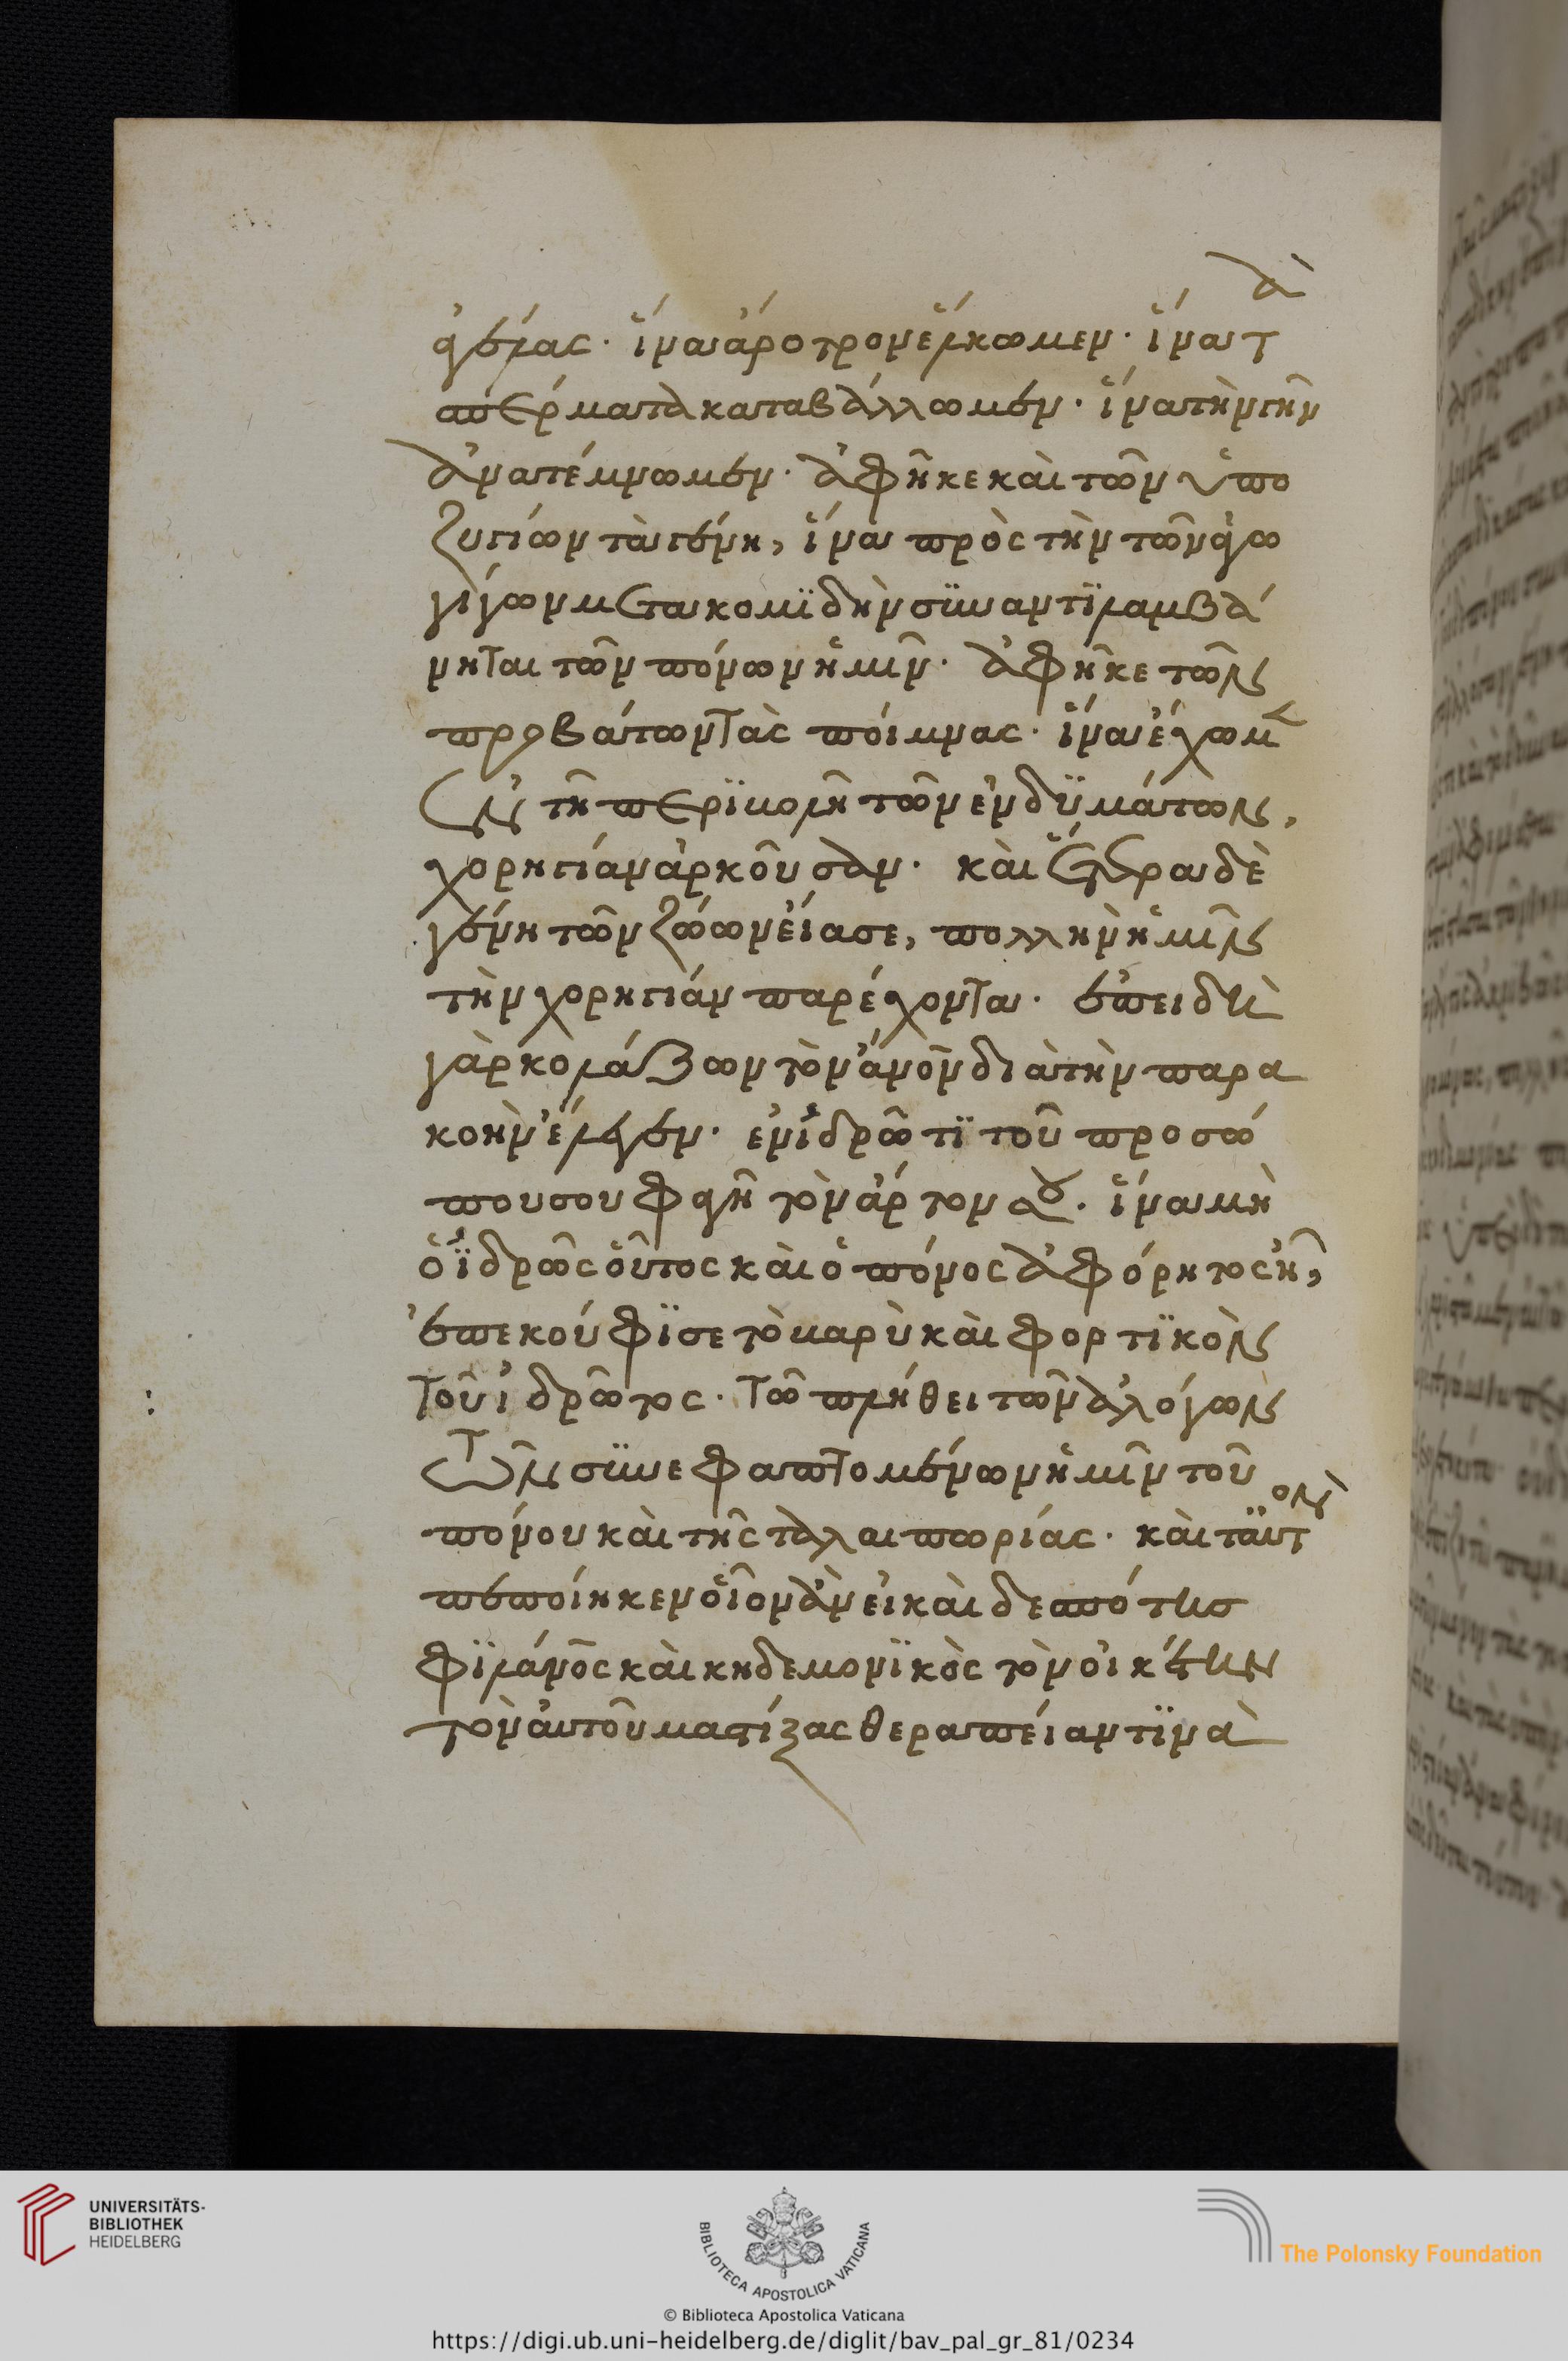 γέλας· ἵνα ἄροτρον ἕλκωμεν· ἵνα τὰ
σπέρματα καταβάλλωμεν· ἵνα τὴν γῆν
ἀνατέμνωμεν· ἀφῆκε καὶ τῶν ὑπο
ζυγίων τὰ γένη, ἵνα πρὸς τὴν τῶν ἀγω
γίμων μετακομϊδὴν συναντϊλαμβά
νηται τῶν πόνων ἡμῖν· ἀφῆκε τῶν
προβάτων τὰς ποίμνας· ἵνα ἔχωμεν
ἐν τῆ περϊβολῆ τῶν ἐνδϋμάτων,
χορηγίαν ἀρκοῦσαν· καὶ ἕτερα δὲ
γένη τῶν ζώων εἴασε, πολλὴν ἡμῖν
τὴν χορηγίαν παρέχοντα· ἐπειδὴ
γὰρ κολάζων τὸν ἄνον διὰ τὴν παρα
κοὴν ἔλεγεν· ἐν ἱδρῶτϊ τοῦ προσώ
που σου φαγῆ τὸν ἄρτον σου· ἵνα μὴ
ὁ ἱδρὼς οὗτος καὶ ὁ πόνος ἀφόρητος ῆ,
ἐπεκούφϊσε τὸ βαρὺ καὶ φορτϊκὸν
τοῦ ἱδρῶτος· τῶ πλήθει τῶν ἀλόγων
τῶν συνεφαπτομένων ἡμῖν τοῦ
πόνου καὶ τῆς ταλαιπωρίας· καὶ ταυτὸν
πεποίηκεν οἷον ἂν εἰ καὶ δεσπότησ
φϊλάνος καὶ κηδεμονϊκὸς τὸν οἰκέτην
τὸν αὐτοῦ μαστίξας θεραπείαν τϊνὰ
UNIVERSITÄTS-
BIBLIOTHEK
HEIDELBERG
BIBLIOTECA APOSTOLICA VATICANA
The Polonsky Foundation
© Biblioteca Apostolica Vaticana
https://digi.ub.uni-heidelberg.de/diglit/bav_pal_gr_81/0234